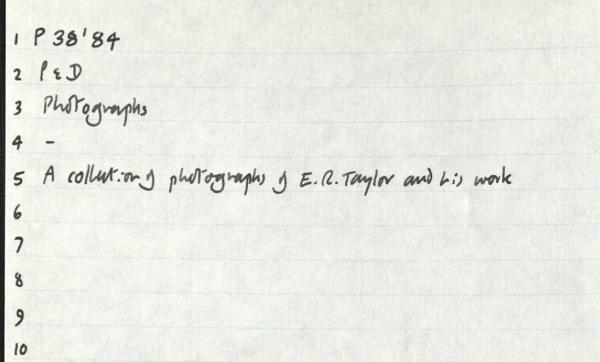 1 P 38'84
2 P & D
3 Photographs
4 -
5 A collection of photographs of E.R. Taylor and his work
6
7
8
9
10